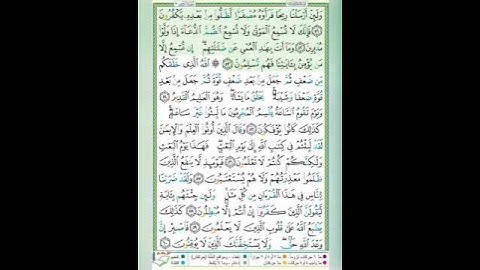 وَلَئِنْ أَرْسَلْنَا رِيحًا فَرَأَوْهُ مُصْفَرًّا لَّظَلُّوا۟ مِنۢ بَعْدِهِۦ يَكْفُرُونَ
﴿٥١﴾ فَإِنَّكَ لَا تُسْمِعُ ٱلْمَوْتَىٰ وَلَا تُسْمِعُ ٱلصُّمَّ ٱلدُّعَآءَ إِذَا وَلَّوْا۟
مُدْبِرِينَ ﴿٥٢﴾ وَمَآ أَنتَ بِهَٰدِ ٱلْعُمْىِ عَن ضَلَٰلَتِهِمْ ۖ إِن تُسْمِعُ إِلَّا
مَن يُؤْمِنُ بِـَٔايَٰتِنَا فَهُم مُّسْلِمُونَ ﴿٥٣﴾ ۞ ٱللَّهُ ٱلَّذِى خَلَقَكُم
مِّن ضَعْفٍ ثُمَّ جَعَلَ مِنۢ بَعْدِ ضَعْفٍ قُوَّةً ثُمَّ جَعَلَ مِنۢ بَعْدِ
قُوَّةٍ ضَعْفًا وَشَيْبَةً ۚ يَخْلُقُ مَا يَشَآءُ ۖ وَهُوَ ٱلْعَلِيمُ ٱلْقَدِيرُ ﴿٥٤﴾
وَيَوْمَ تَقُومُ ٱلسَّاعَةُ يُقْسِمُ ٱلْمُجْرِمُونَ مَا لَبِثُوا۟ غَيْرَ سَاعَةٍ ۚ
كَذَٰلِكَ كَانُوا۟ يُؤْفَكُونَ ﴿٥٥﴾ وَقَالَ ٱلَّذِينَ أُوتُوا۟ ٱلْعِلْمَ وَٱلْإِيمَٰنَ
لَقَدْ لَبِثْتُمْ فِى كِتَٰبِ ٱللَّهِ إِلَىٰ يَوْمِ ٱلْبَعْثِ ۖ فَهَٰذَا يَوْمُ ٱلْبَعْثِ
وَلَٰكِنَّكُمْ كُنتُمْ لَا تَعْلَمُونَ ﴿٥٦﴾ فَيَوْمَئِذٍ لَّا يَنفَعُ ٱلَّذِينَ
ظَلَمُوا۟ مَعْذِرَتُهُمْ وَلَا هُمْ يُسْتَعْتَبُونَ ﴿٥٧﴾ وَلَقَدْ ضَرَبْنَا
لِلنَّاسِ فِى هَٰذَا ٱلْقُرْءَانِ مِن كُلِّ مَثَلٍ ۚ وَلَئِن جِئْتَهُم بِـَٔايَةٍ
لَّيَقُولَنَّ ٱلَّذِينَ كَفَرُوٓا۟ إِنْ أَنتُمْ إِلَّا مُبْطِلُونَ ﴿٥٨﴾ كَذَٰلِكَ
يَطْبَعُ ٱللَّهُ عَلَىٰ قُلُوبِ ٱلَّذِينَ لَا يَعْلَمُونَ ﴿٥٩﴾ فَٱصْبِرْ إِنَّ
وَعْدَ ٱللَّهِ حَقٌّ ۖ وَلَا يَسْتَخِفَّنَّكَ ٱلَّذِينَ لَا يُوقِنُونَ ﴿٦٠﴾